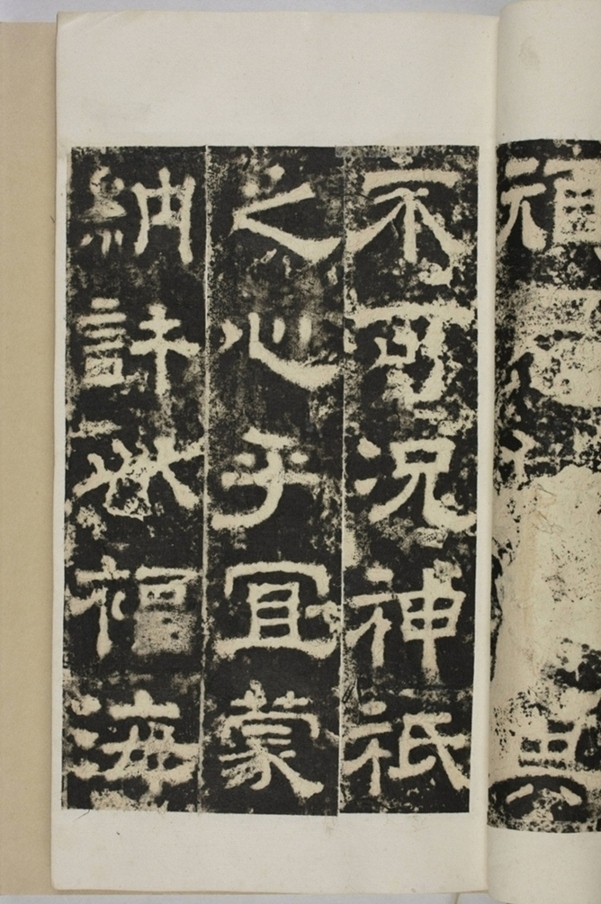 不可況神祇
之心乎宜蒙
納許以福海